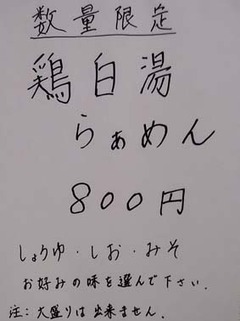 数量限定
鶏白湯
らぁめん
800円
しょうゆ・しお・みそ
お好みの味を選んで下さい.
注:大盛りは出来ません.